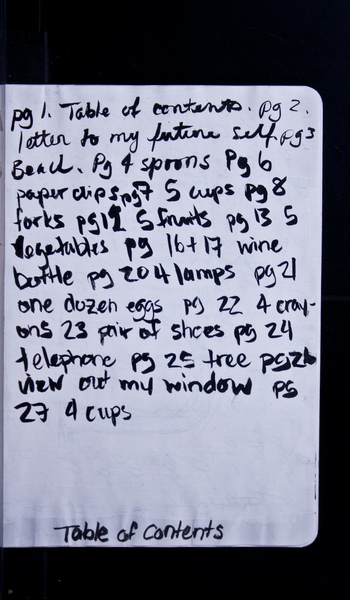 pg 1. Table of contents. pg 2.
letter to my future self. pg 3
Beach. Pg 4 spoons Pg 6
paper clips pg 7 5 cups pg 8
forks pg 12 5 fruits pg 13 5
Vegetables pg 16+17 wine
bottle pg 20 4 lamps pg 21
one dozen eggs pg 22 4 cray-
ons 23 pair of shoes pg 24
telephone pg 25 tree pg 26
view out my window pg
27 4 cups
Table of Contents